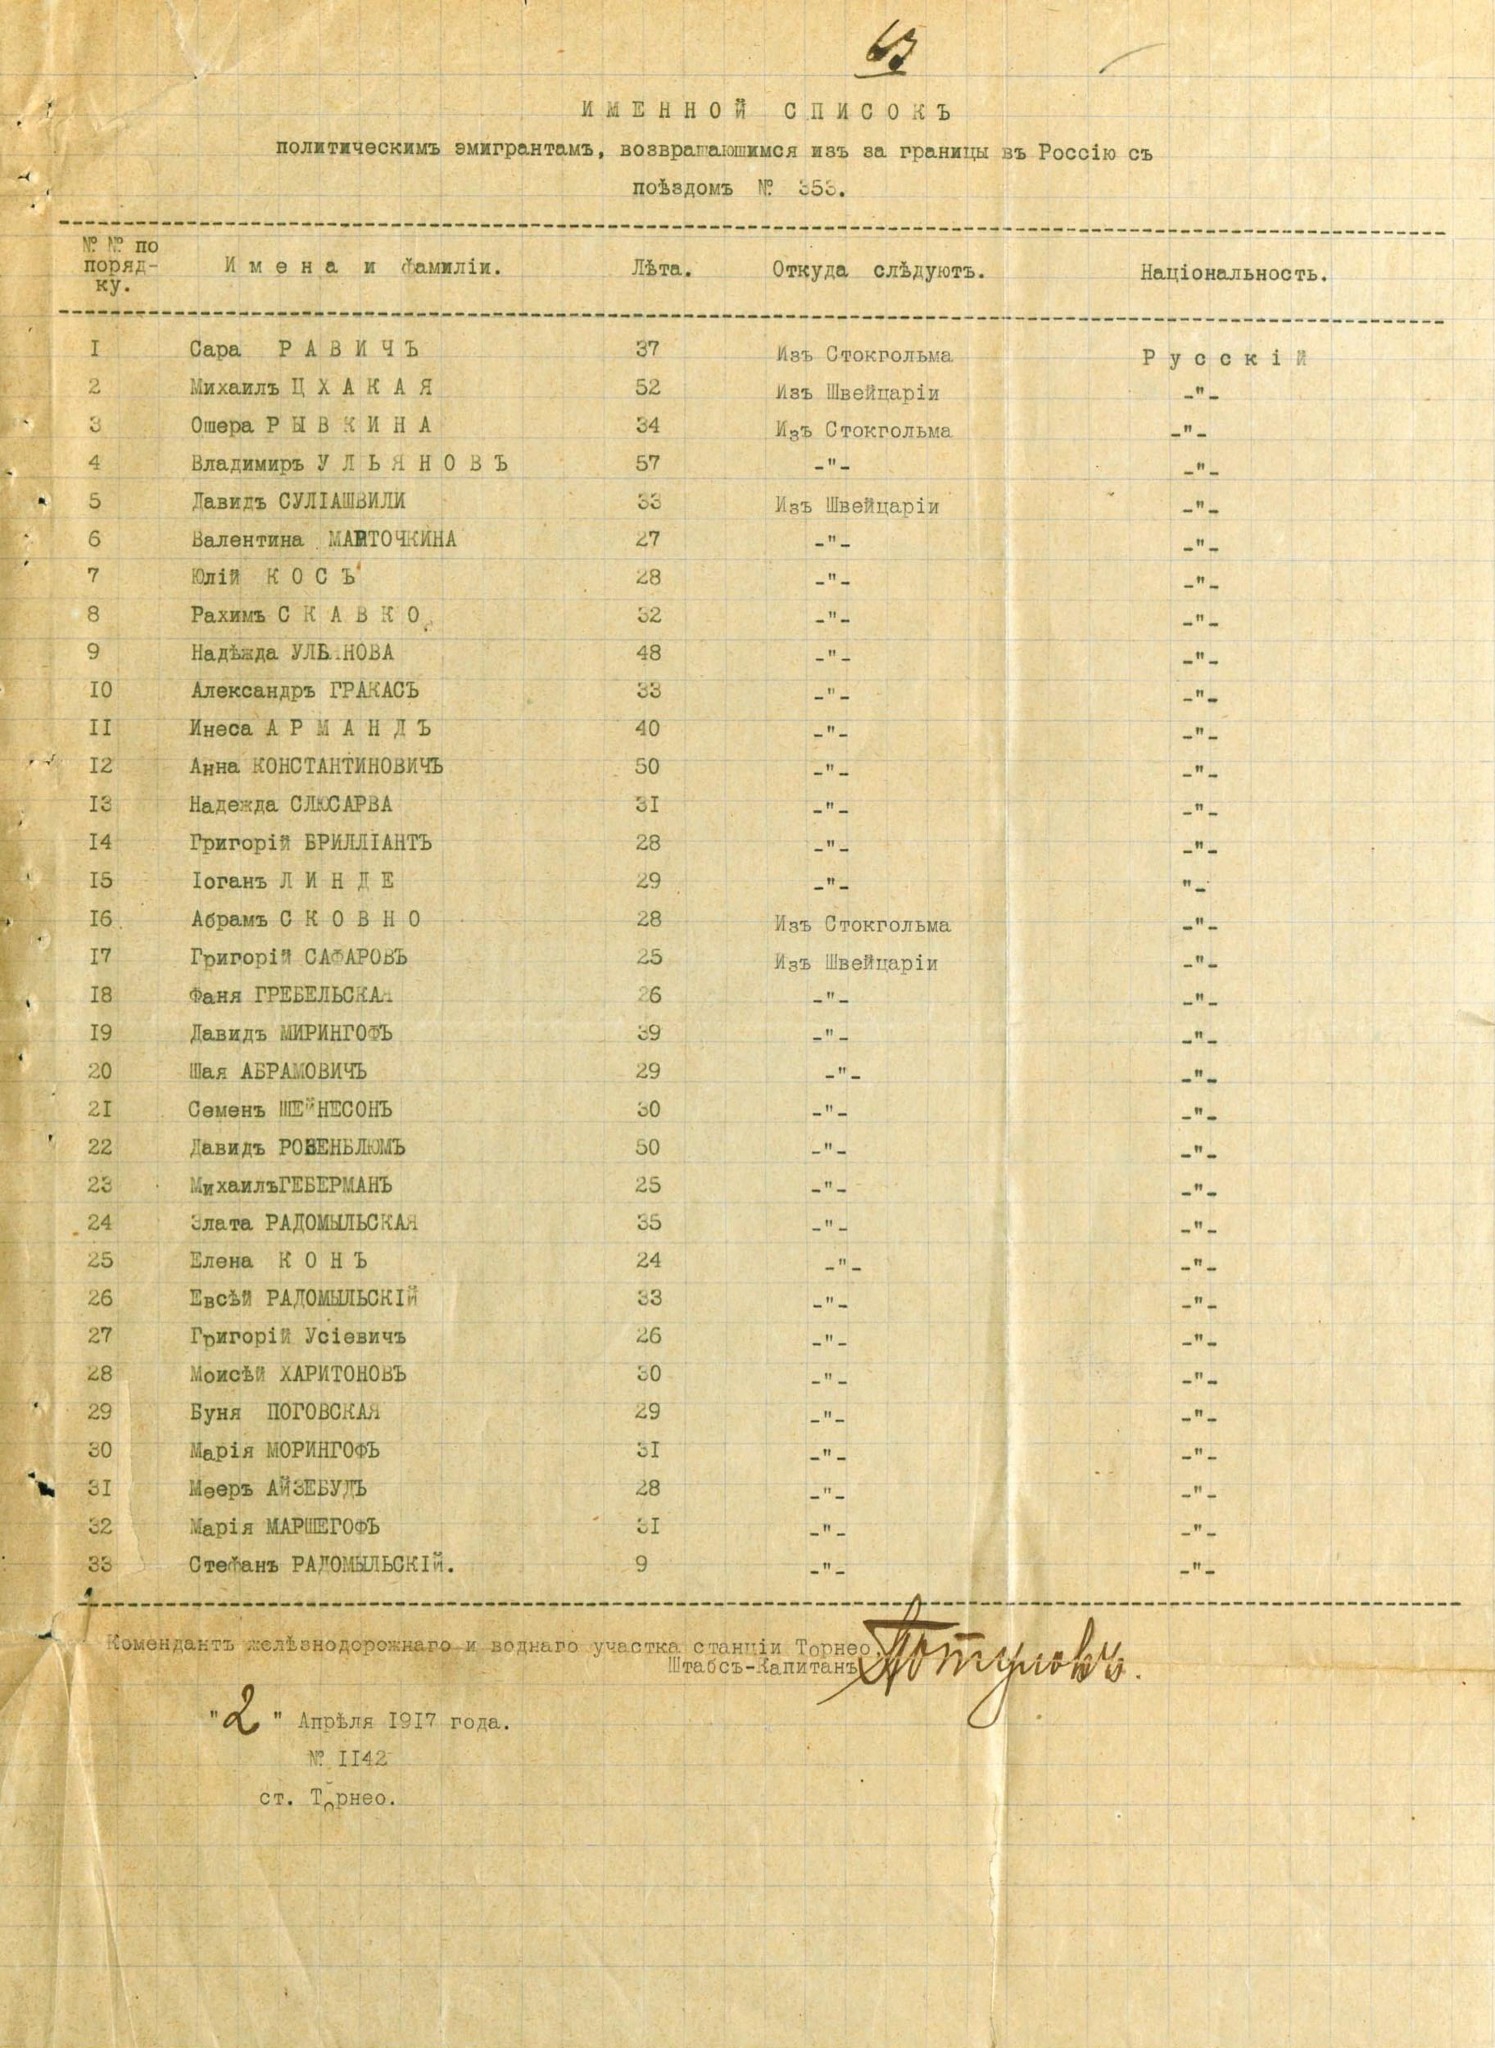 ИМЕННОЙ СПИСОКЪ
политическимъ эмигрантамъ, возвращающимся изъ за границы въ Россію съ
поѣздомъ № 353.
№ № по поряд-ку. Имена и фамиліи. Лѣта. Откуда слѣдуютъ. Національность.
I Сара РАВИЧЪ 37 Изъ Стокгольма Русскій
2 Михаилъ ЦХАКАЯ 52 Изъ Швейцаріи -"-
3 Ошера РЫВКИНА 34 Изъ Стокгольма -"-
4 Владимиръ УЛЬЯНОВЪ 57 -"- -"-
5 Давидъ СУЛІАШВИЛИ 33 Изъ Швейцаріи -"-
6 Валентина 27 -"- -"-
7 Юлій КОСЪ 28 -"- -"-
8 Рахимъ СКАВКО 32 -"- -"-
9 Надѣжда УЛЬЯНОВА 48 -"- -"-
IO Александръ ГРАКАСЪ 33 -"- -"-
II Инеса АРМАНДЪ 40 -"- -"-
I2 Анна КОНСТАНТИНОВИЧЪ 50 -"- -"-
I3 Надежда СЛЮСАРВА 3I -"- -"-
I4 Григорій БРИЛЛІАНТЪ 28 -"- -"-
I5 Іоганъ ЛИНДЕ 29 -"- "-
I6 Абрамъ СКОВНО 28 Изъ Стокгольма -"-
I7 Григорій САФАРОВЪ 25 Изъ Швейцаріи -"-
I8 Фаня ГРЕБЕЛЬСКАЯ 26 -"- -"-
I9 Давидъ МИРИНГОФЪ 39 -"- -"-
20 Шая АБРАМОВИЧЪ 29 -"- -"-
2I Семенъ ШЕЙНЕСОНЪ 30 -"- -"-
22 Давидъ РОЗЕНБЛЮМЪ 50 -"- -"-
23 МихаилъГЕБЕРМАНЪ 25 -"- -"-
24 Злата РАДОМЫЛЬСКАЯ 35 -"- -"-
25 Елена КОНЪ 24 -"- -"-
26 Евсѣй РАДОМЫЛЬСКІЙ 33 -"- -"-
27 Григорій Усіевичъ 26 -"- -"-
28 Моисѣй ХАРИТОНОВЪ 30 -"- -"-
29 Буня ПОГОВСКАЯ 29 -"- -"-
30 Марія МОРИНГОФЪ 3I -"- -"-
3I Мееръ АЙЗЕБУДЪ 28 -"- -"-
32 Марія МАРШЕГОФЪ 3I -"- -"-
33 Стефанъ РАДОМЫЛЬСКІЙ. 9 -"- -"-
Комендантъ желѣзнодорожнаго и воднаго участка станціи Торнео,
Штабсъ-Капитанъ
"2" Апрѣля I9I7 года.
№ II42
ст. Торнео.